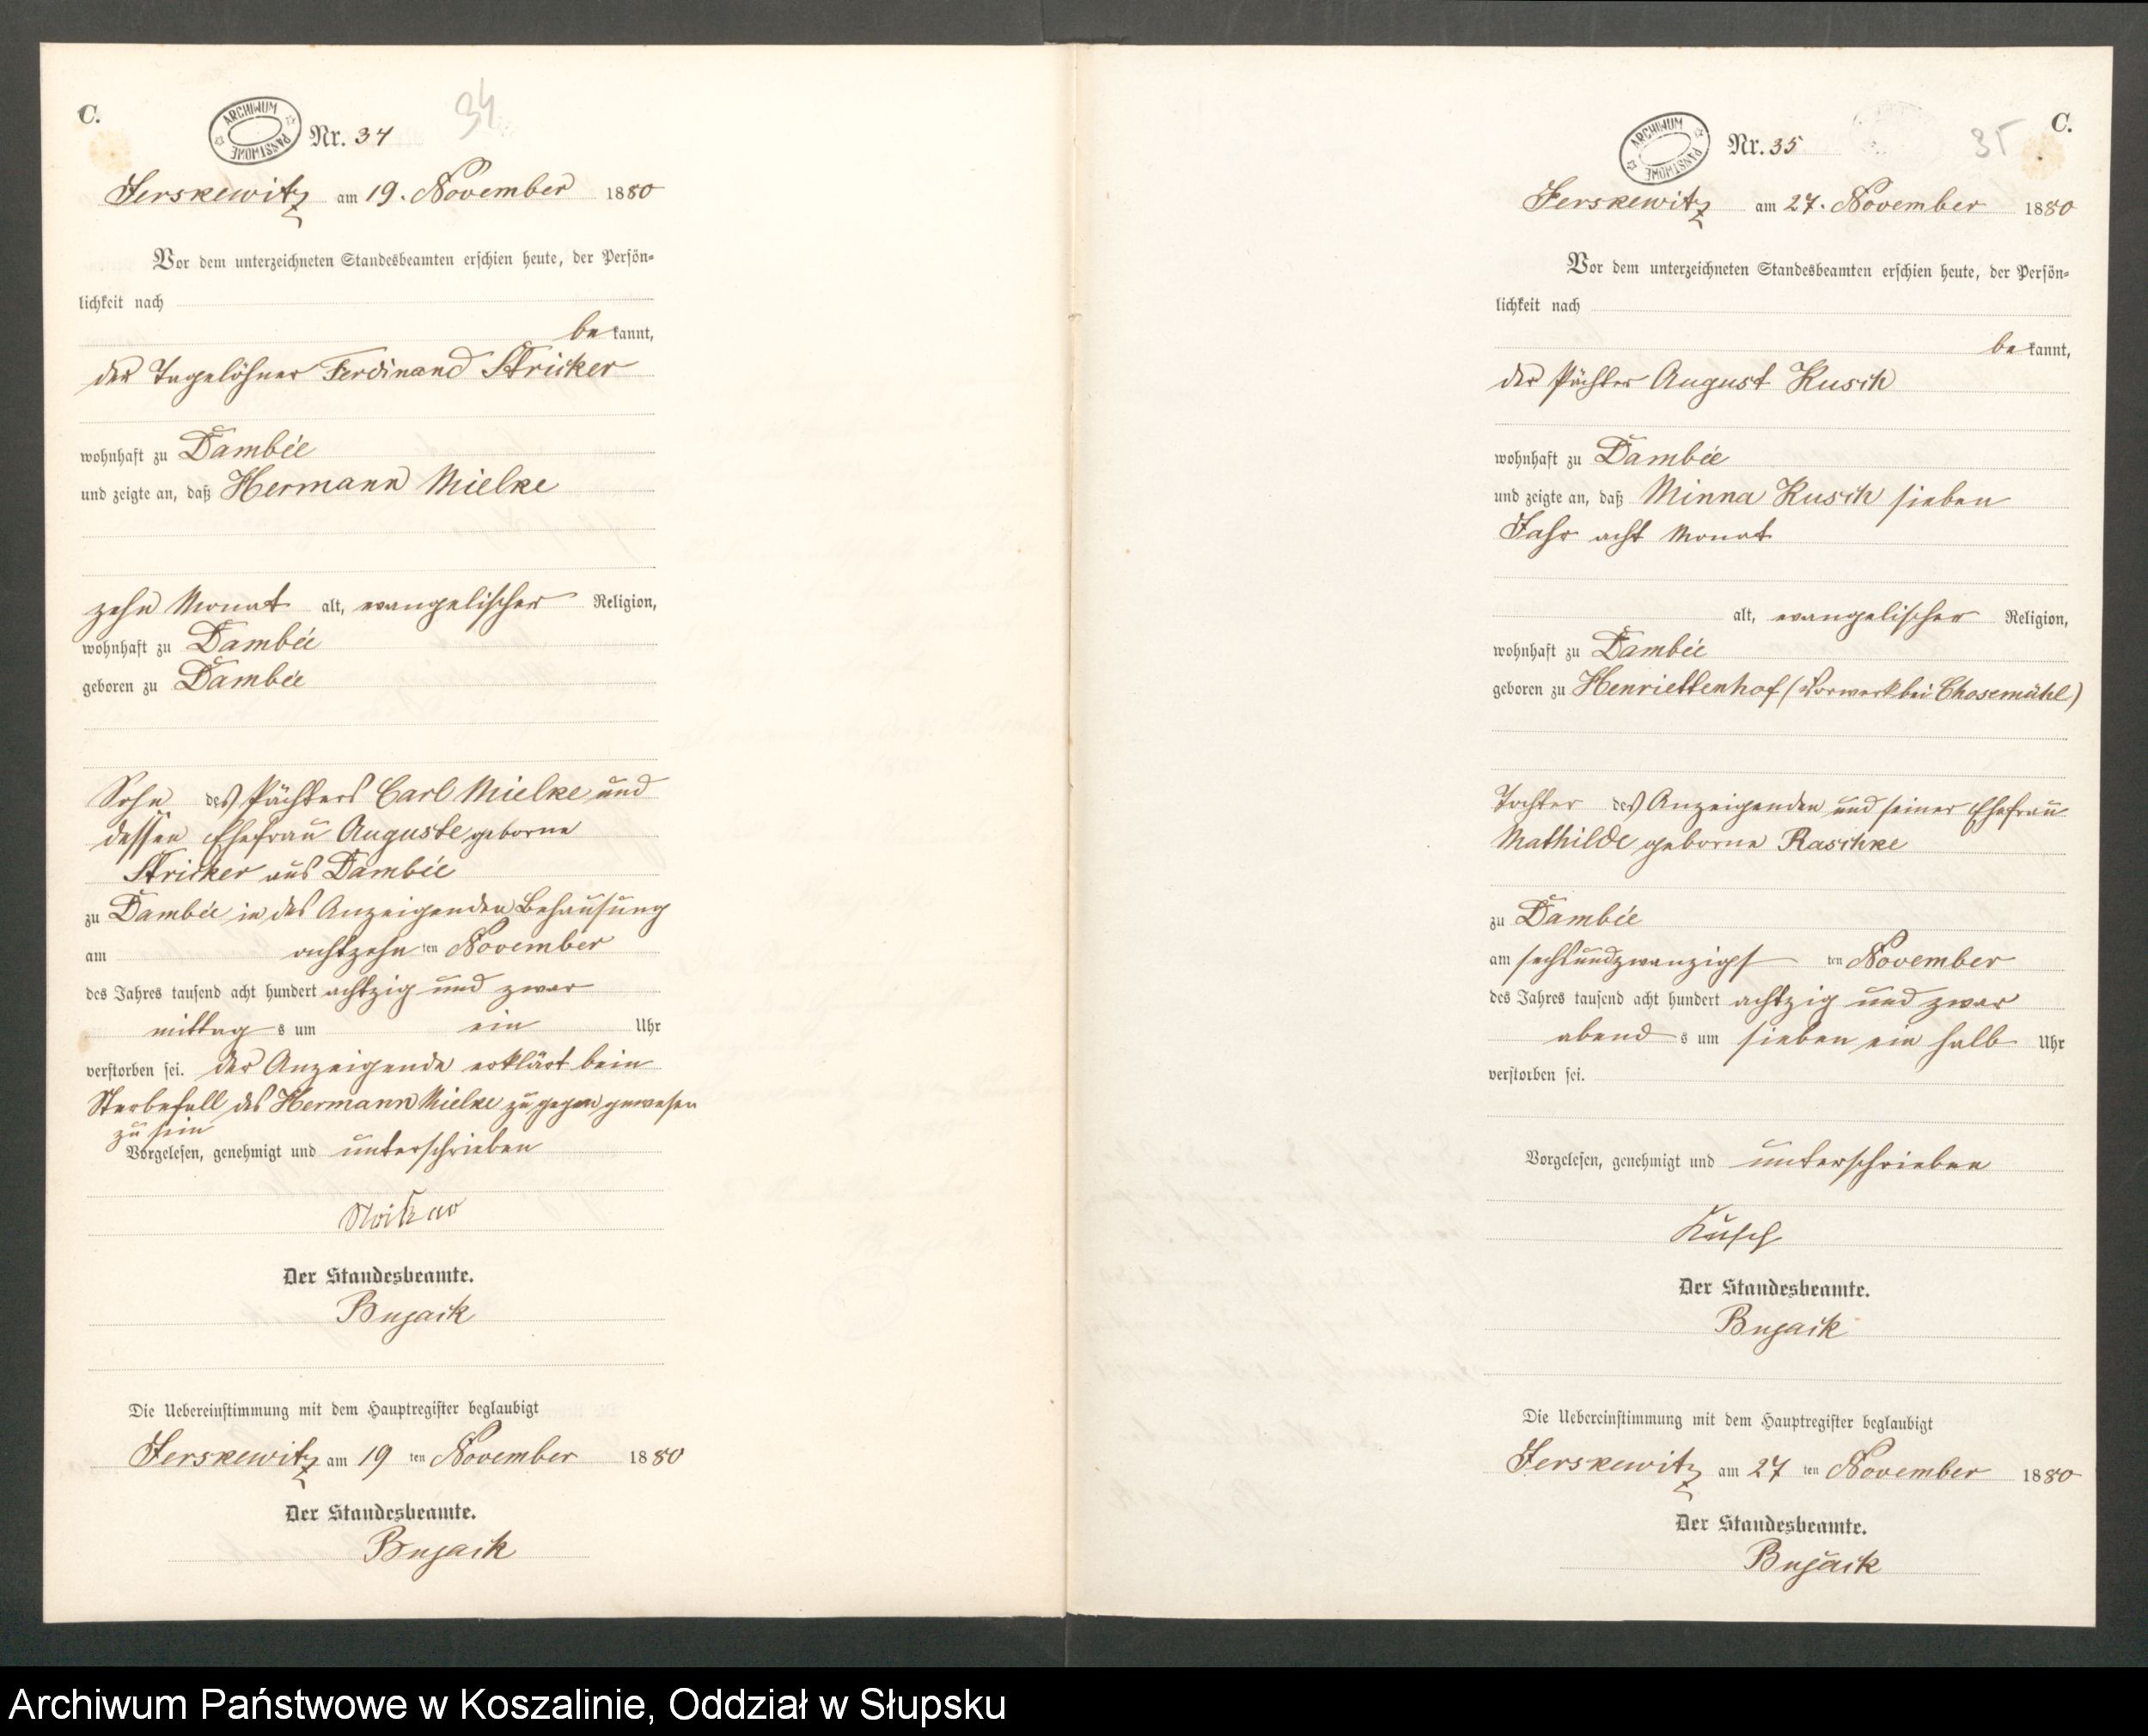 C.
ARCHIWUM PAŃSTWOWE
Nr. 34
34
Jerskewitz am 19. November 1880
Vor dem unterzeichneten Standesbeamten erschien heute, der Persön-
lichkeit nach
be kannt,
der Tagelöhner Ferdinand Stricker
wohnhaft zu Dambée
und zeigte an, daß Hermann Mielke
zehn Monat alt, evangelischer Religion,
wohnhaft zu Dambée
geboren zu Dambée
Sohn des Pächters Carl Mielke und
dessen Ehefrau Auguste geborne
Stricker aus Dambée
zu Dambée in des Anzeigenden Behausung
am achtzehn ten November
des Jahres tausend acht hundert achtzig und zwar
mittag s um ein Uhr
verstorben sei. der Anzeigende erklärt beim
Sterbefall des Hermann Mielke zugegen gewesen
zu sein
Vorgelesen, genehmigt und unterschrieben
Der Standesbeamte.
Bujack
Die Uebereinstimmung mit dem Hauptregister beglaubigt
Jerskewitz am 19 ten November 1880
Der Standesbeamte.
Bujack
C.
ARCHIWUM PAŃSTWOWE
Nr. 35
35
Jerskewitz am 27. November 1880
Vor dem unterzeichneten Standesbeamten erschien heute, der Persön-
lichkeit nach
be kannt,
der Pächter August Kusch
wohnhaft zu Dambée
und zeigte an, daß Minna Kusch sieben
Jahr acht Monat
alt, evangelischer Religion,
wohnhaft zu Dambée
geboren zu Henriettenhof (Vorwerk bei Chosemühl)
Tochter des Anzeigenden und seiner Ehefrau
Mathilde geborne Raschke
zu Dambée
am sechsundzwanzigs ten November
des Jahres tausend acht hundert achtzig und zwar
abend s um sieben ein halb Uhr
verstorben sei.
Vorgelesen, genehmigt und unterschrieben
Kusch
Der Standesbeamte.
Bujack
Die Uebereinstimmung mit dem Hauptregister beglaubigt
Jerskewitz am 27 ten November 1880
Der Standesbeamte.
Bujack
Archiwum Państwowe w Koszalinie, Oddział w Słupsku